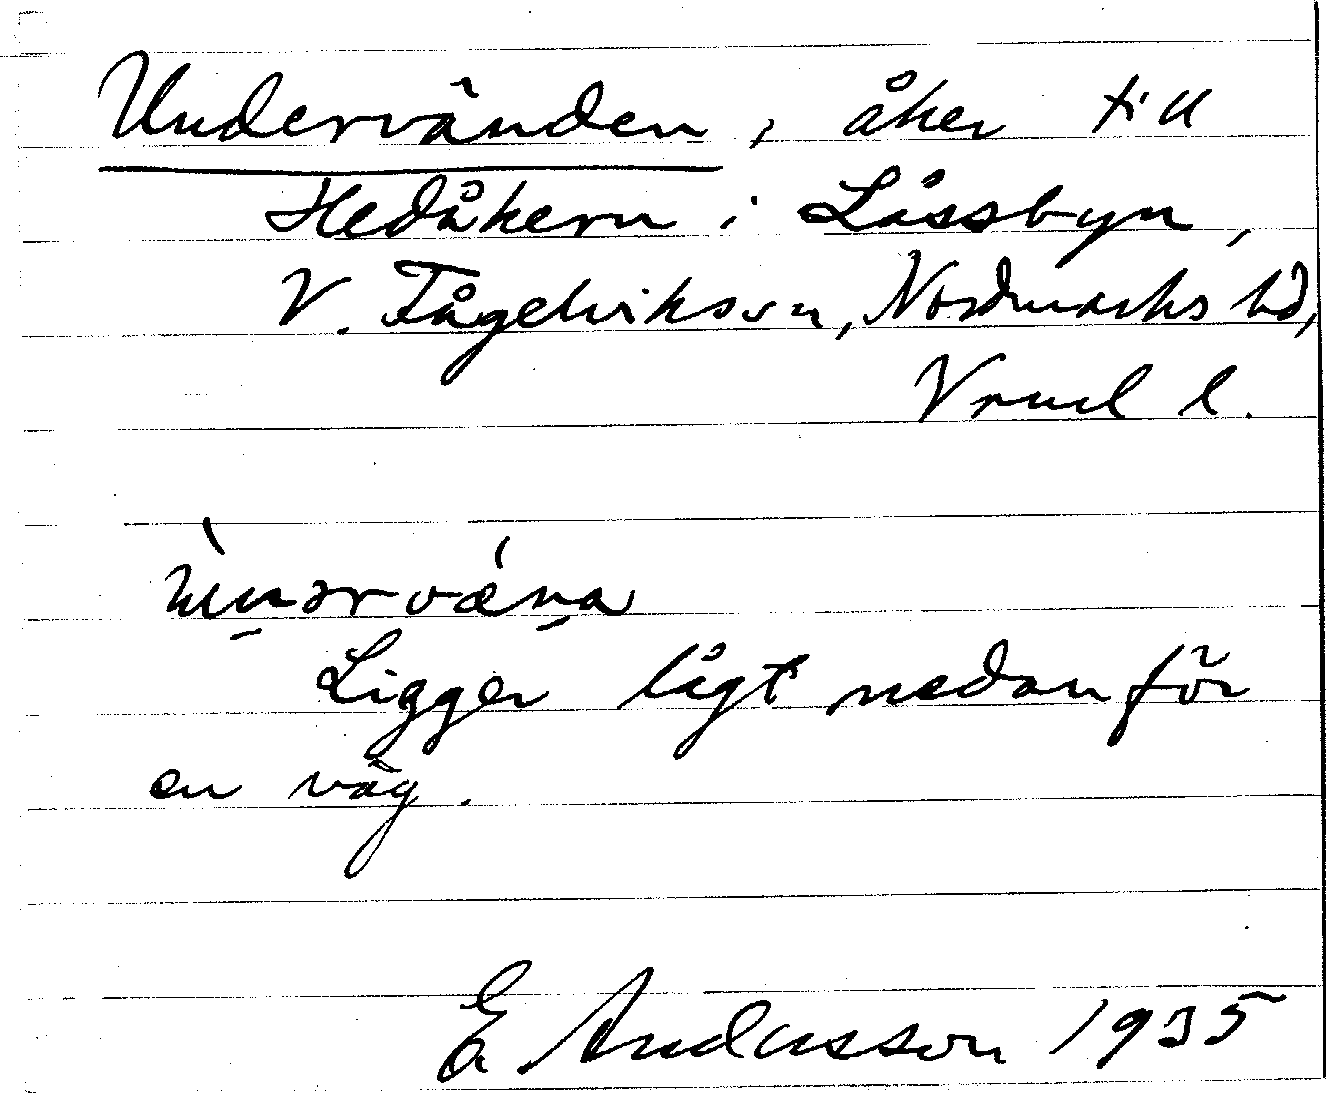 Undervänden, åker till
Hedåkern i Låssbyn,
V. Fågelvikssn, Nordmarks hd,
Vrml l.
Ligger lågt nedanför
en väg.
E Andersson 1935